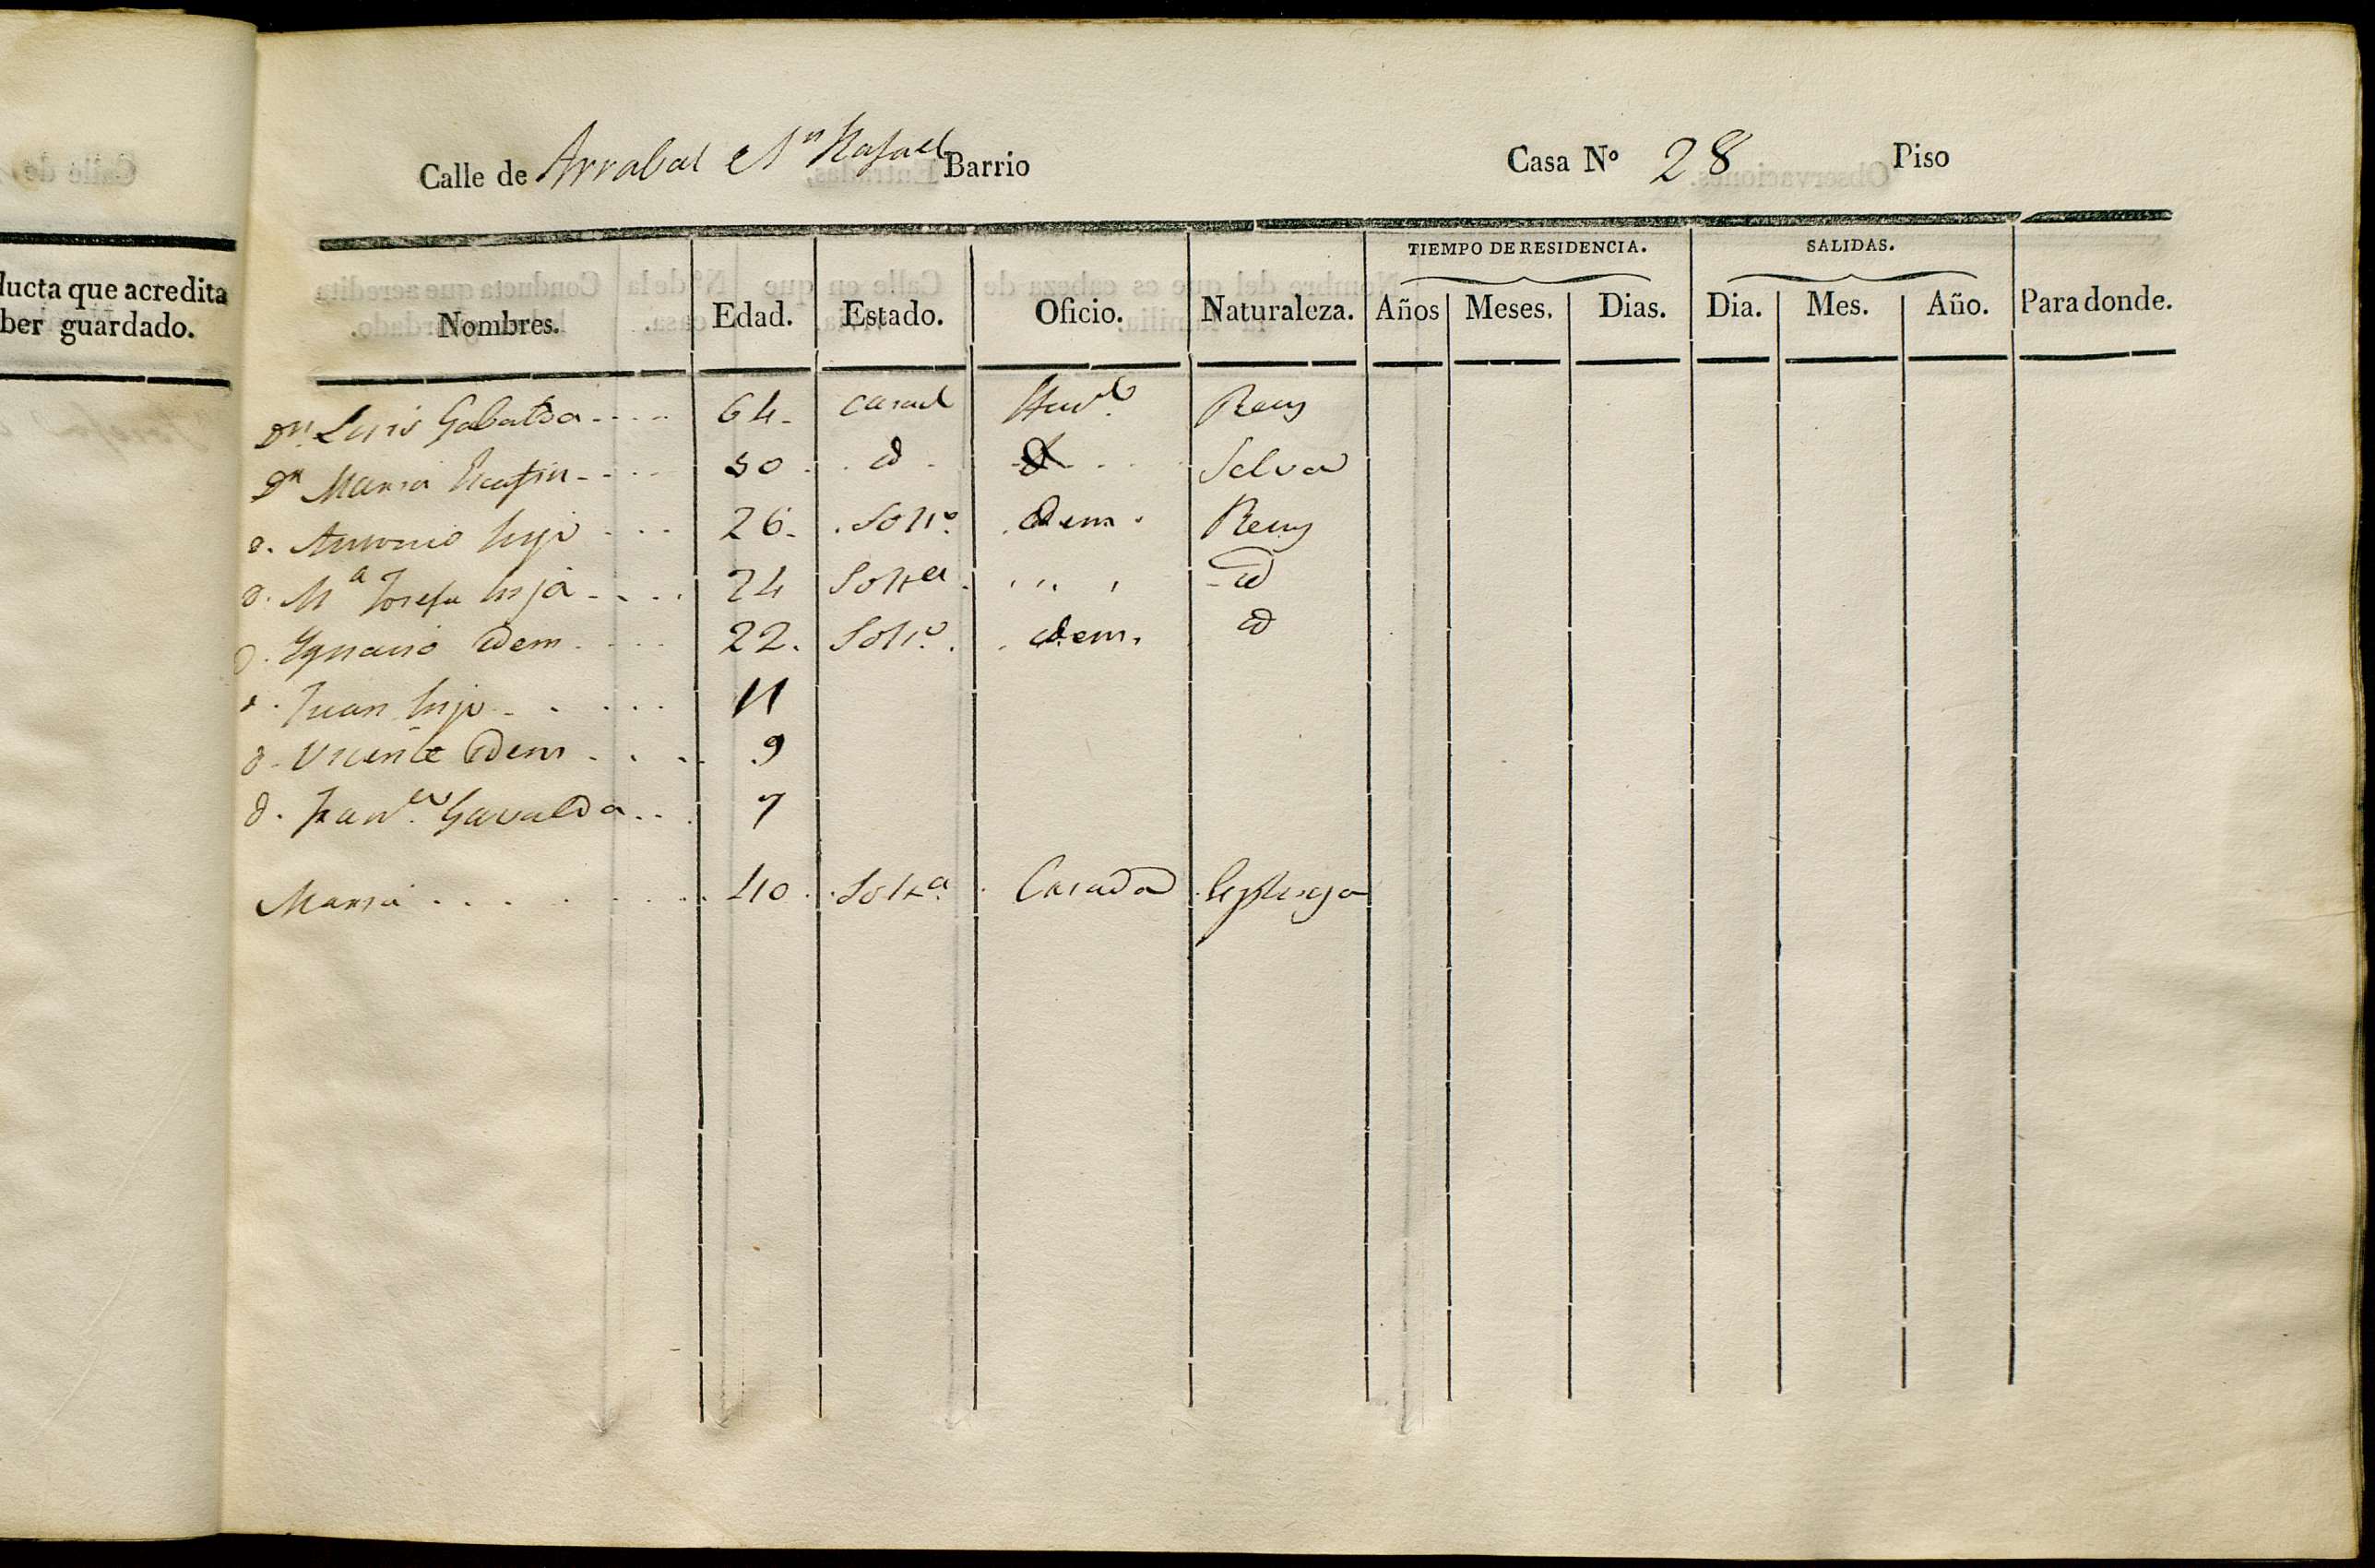 Calle de Arrabal Sn Rafael Barrio Casa No 28 Piso
ducta que acredita
ber guardado.
TIEMPO DE RESIDENCIA. SALIDAS.
Nombres. Edad. Estado. Oficio. Naturaleza. Años Meses. Dias. Dia. Mes. Año. Para donde.
Dn. Luis Gabalda 64 casad Reus
Da Maria 50 id Selva
D. Antonio hijo 26 Soltro. idem Reus
D. Ma Josefa hija 24 Soltra id
D. Ygnacio idem 22. Soltro. idem. id
D. Juan hijo 11
D. Vicente idem 9
D. Franca. Gavalda 7
Maria 40 Soltra. Criada Espluga